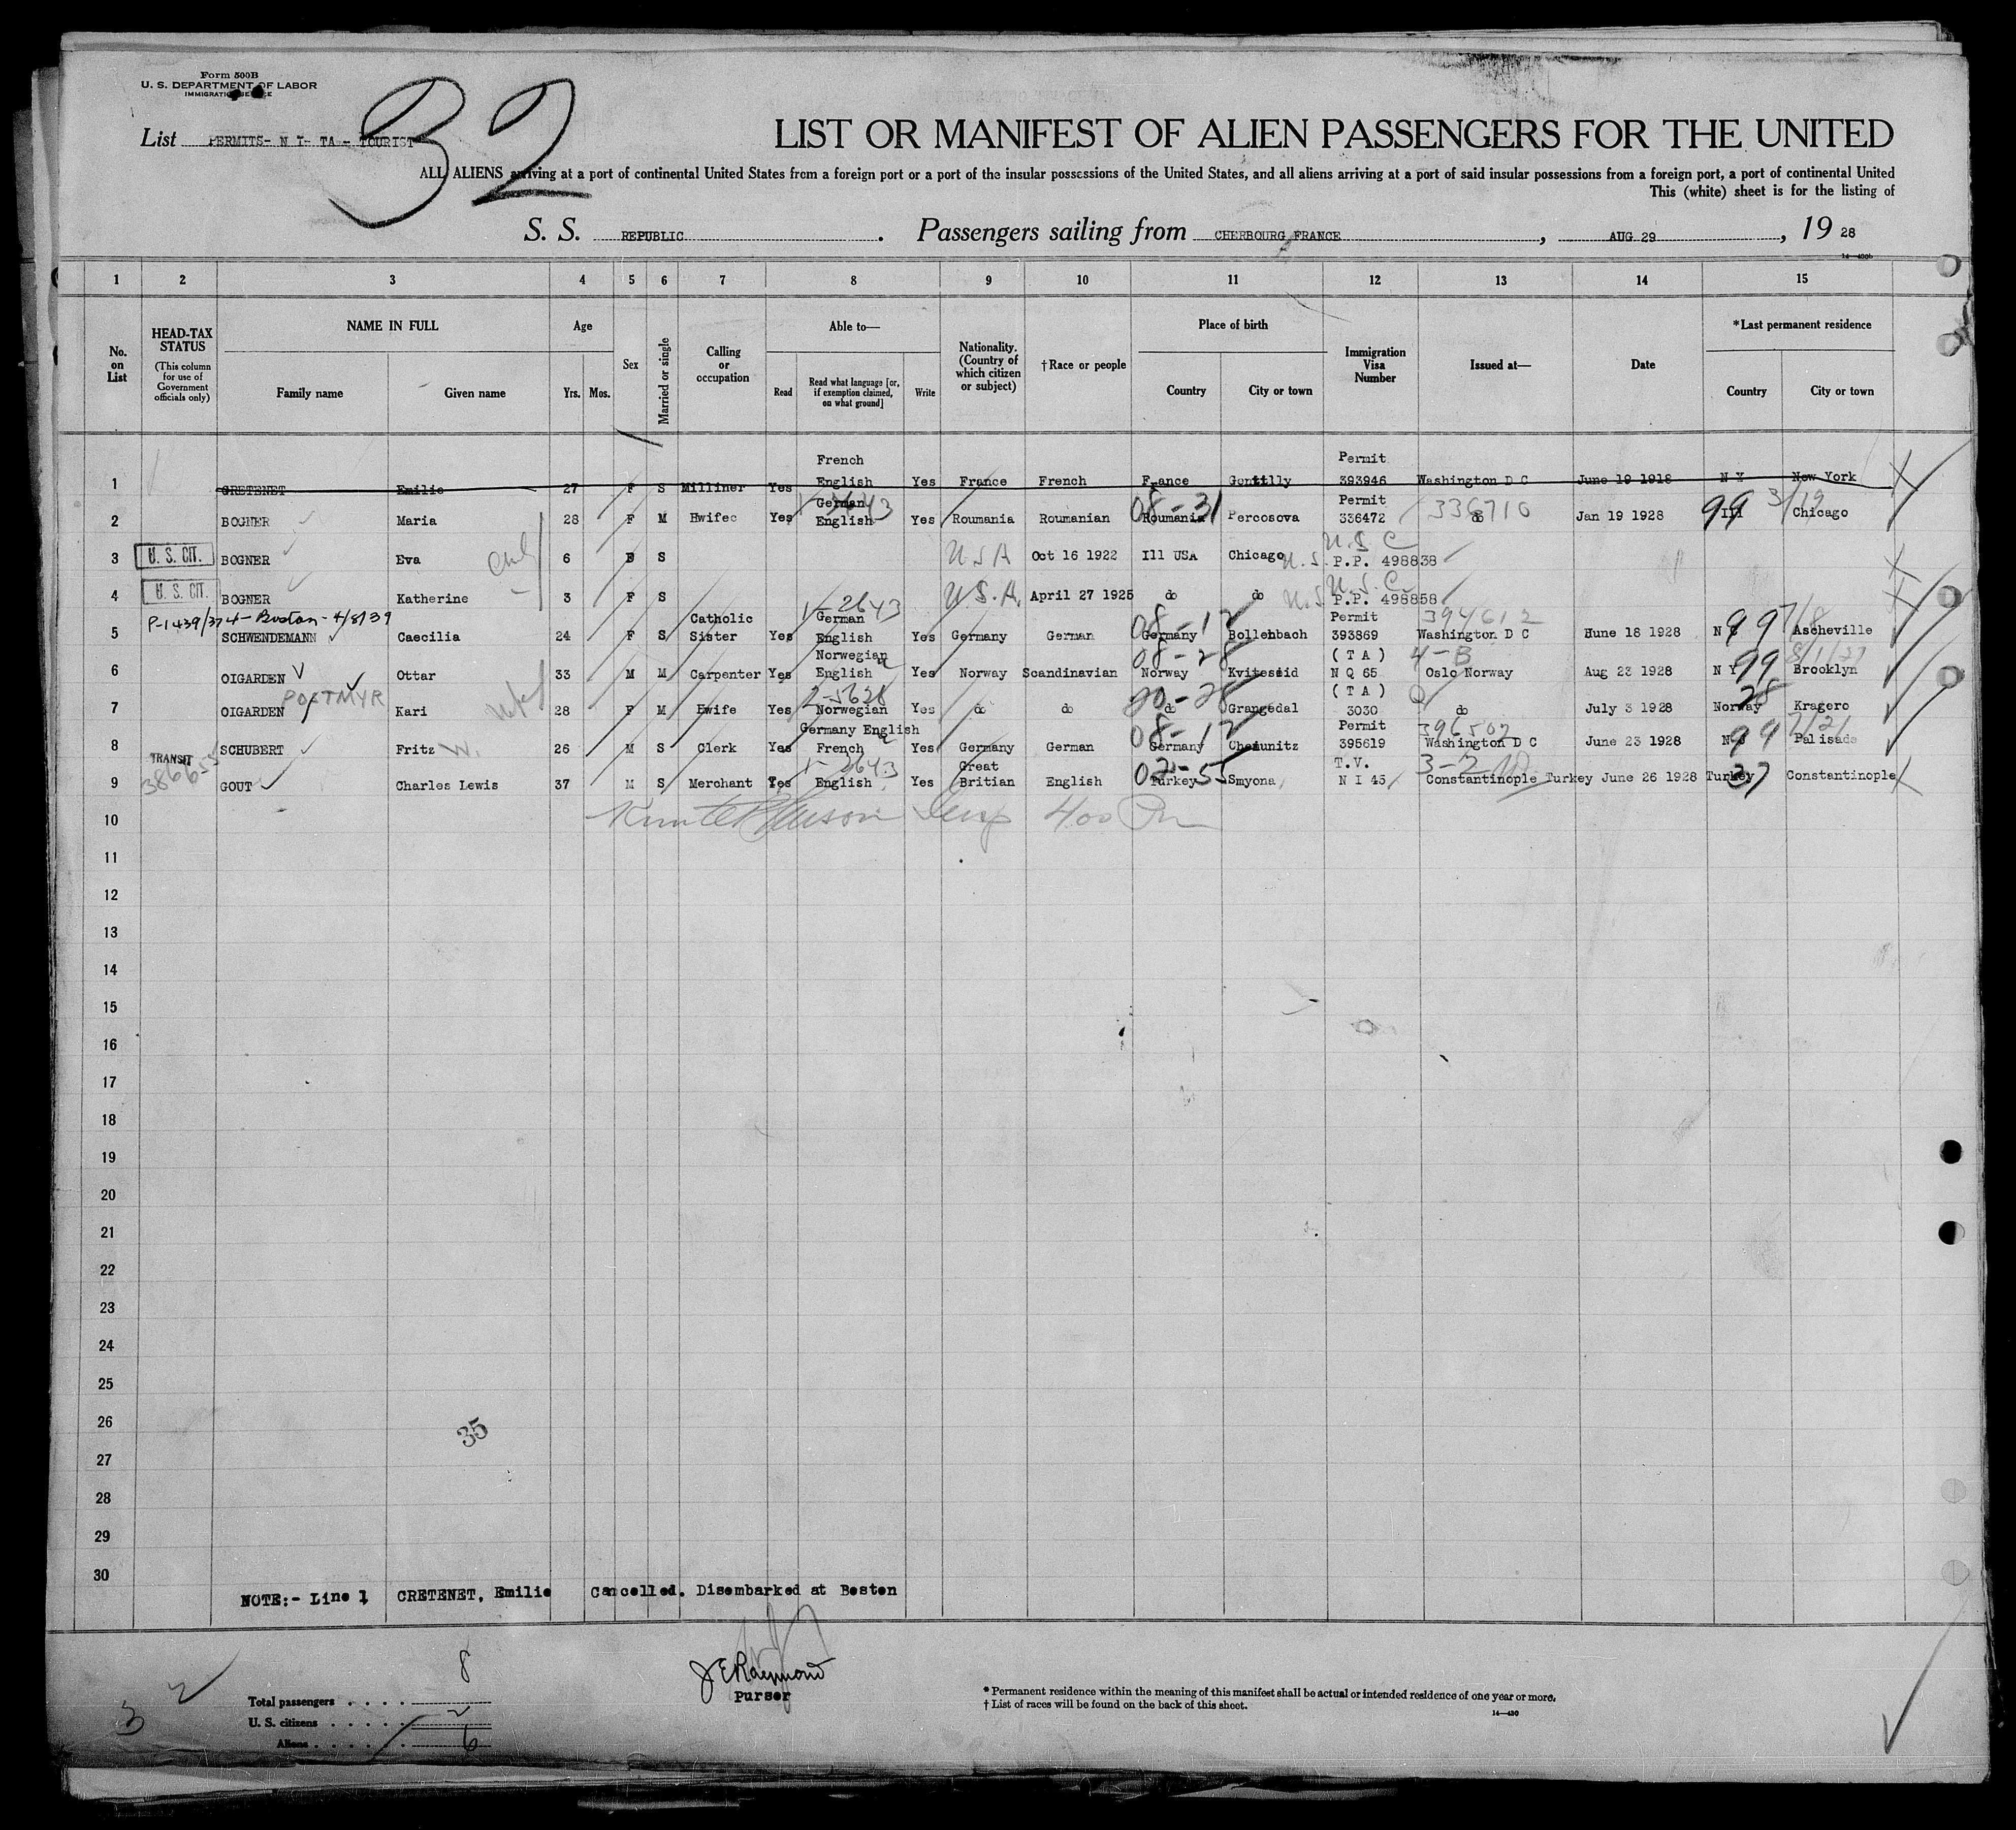 Form 500B
U. S. DEPARTMENT OF LABOR
List PERMITS- N I- TA - TOURIST
32
LIST OR MANIFEST OF ALIEN PASSENGERS FOR THE UNITED
ALL ALIENS arriving at a port of continental United States from a foreign port or a port of the insular possessions of the United States, and all aliens arriving at a port of said insular possessions from a foreign port, a port of continental United
This (white) sheet is for the listing of
S. S. REPUBLIC. Passengers sailing from CHERBOURG, FRANCE, AUG 29, 1928
1 2 3 4 5 6 7 8 9 10 11 12 13 14 15
No. on List
HEAD-TAX STATUS
(This column for use of Government officials only)
NAME IN FULL
Family name Given name
Age
Yrs. Mos.
Sex
Married or single
Calling or occupation
Able to—
Read
Read what language [or, if exemption claimed, on what ground]
Write
Nationality. (Country of which citizen or subject)
†Race or people
Place of birth
Country City or town
Immigration Visa Number
Issued at—
Date
*Last permanent residence
Country City or town
French Permit
1 CRETENET Emilie 27 F S Milliner Yes English Yes France French France Gentilly 393946 Washington D C June 19 1918 N Y New York
German Permit 336710 99 3/19
2 BOGNER Maria 28 F M Hwifec Yes English Yes Roumania Roumanian 08-31 Roumania Percosova 336472 do Jan 19 1928 Ill Chicago
3 U. S. CIT. BOGNER Eva 6 F S U.S.A Oct 16 1922 Ill USA Chicago U.S. U.S C P.P. 498838
4 U. S. CIT. BOGNER Katherine 3 F S U.S.A. April 27 1925 do do U.S. U.S.C. P.P. 498858
P-1439/374-Boston-4/8/39 Catholic 1-2643 German 08-12 Permit 394612 99 7/8
5 SCHWENDEMANN Caecilia 24 F S Sister Yes English Yes Germany German Germany Bollenbach 393869 Washington D C Hune 18 1928 N C Ascheville
Norwegian 08-28 (TA) 4-B 99 8/1/27
6 OIGARDEN Ottar 33 M M Carpenter Yes English Yes Norway Scandinavian Norway Kviteseid N Q 65 Oslo Norway Aug 23 1928 N Y Brooklyn
POSTMYR 2-5628 20-28 (TA) 28
7 OIGARDEN Kari 28 F M Hwife Yes Norwegian Yes do do do Grangedal 3030 do July 3 1928 Norway Kragero
Germany English 08-12 Permit 396502 99 7/21
8 SCHUBERT Fritz W. 26 M S Clerk Yes French Yes Germany German Germany Chemunitz 395619 Washington D C June 23 1928 N J Palisade
TRANSIT 386655 1-2643 Great 02-55 T.V. 37
9 GOUT Charles Lewis 37 M S Merchant Yes English Yes Britian English Turkey Smyona N I 45 Constantinople Turkey June 26 1928 Turkey Constantinople
10
11
12
13
14
15
16
17
18
19
20
21
22
23
24
25
26
35
27
28
29
30
NOTE:- Line 1 CRETENET, Emilie Cancelled. Disembarked at Boston
J E Raymond
Purser
32
Total passengers . . . . 8
U. S. citizens . . . . . 2
Aliens . . . . . 6
* Permanent residence within the meaning of this manifest shall be actual or intended residence of one year or more.
† List of races will be found on the back of this sheet.
14—430